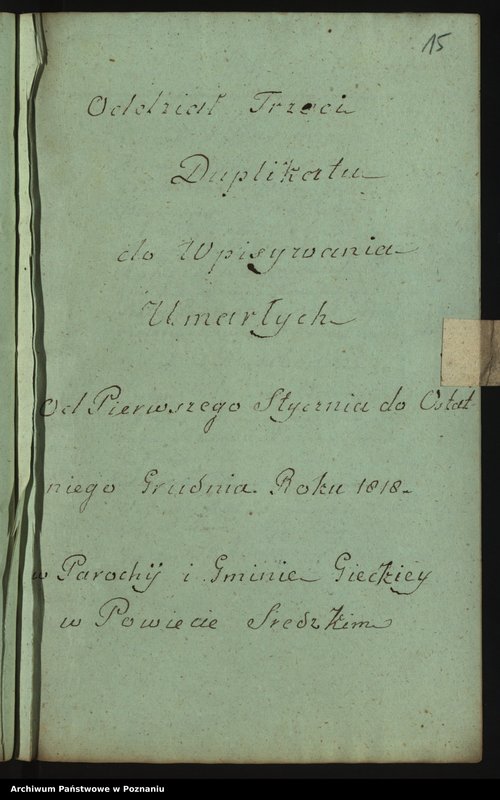 15
Oddział Trzeci
Duplikatu
do Wpisywania
Umarłych
Od Pierwszego Stycznia do Ostat
niego Grudnia Roku 1818.
w Parochij i Gminie Gieckiey
w Powiecie Sredzkim
Archiwum Państwowe w Poznaniu